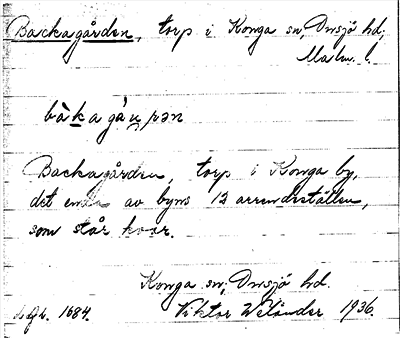 Backagården, torp i Konga sn, Onsjö hd,
Malm. l.
bàkagá'ṇ pən
Backagården, torp i Konga by,
det enda av byns 13 arrendeställen,
som står kvar.
Konga sn, Onsjö hd.
1684. Viktor Welander 1936.